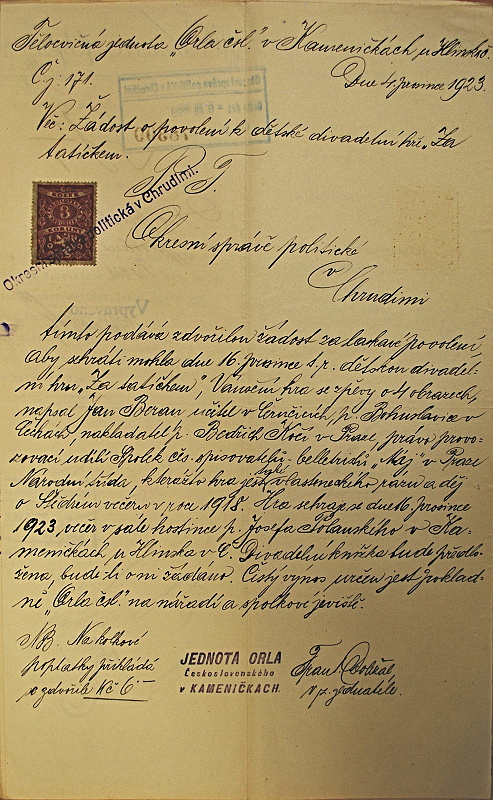 Tělocvičná jednota „Orla čsl." v Kameničkách u Hlinska.
Čj. 171.
Dne 4. prosince 1923.
Věc: Žádost o povolení k dětské divadelní hře „Za
tatíčkem.
P. T.
KOLEK
3
KORUNY
Okresní správa politická v Chrudimi.
Okresní správě politické
v
Chrudimi
tímto podává zdvořilou žádost za laskavé povolení,
aby sehráti mohla dne 16. prosince t. r. dětskou divadel-
ní hru „Za tatíčkem", Vánoční hra se zpěvy o 4 obrazech,
napsal Jan Beran učitel v Černčicích, p. Bohuslavice v
Čechách, nakladatel p. Bedřich Kočí v Praze, právo provo-
zovací udílí Spolek čes. spisovatelů belletristů „Máj" v Praze
Národní třída, kterážto hra jest vlasteneckého rázu a děj
o Štědrém večeru v roce 1918. Hra sehraje se dne 16. prosince
1923, večer v sále hostince p. Josefa Polanského v Ka-
meničkách u Hlinska v Č. Divadelní knížka bude předlo-
žena, bude-li o ni žádáno. Čistý výnos určen jest poklad-
ně „Orla čsl." na nářadí a spolkové jeviště.
NB. Na kolkové
poplatky přikládá
se zdvořile Kč 6
JEDNOTA ORLA
Československého
v KAMENIČKÁCH.
Frant.
jednatele.